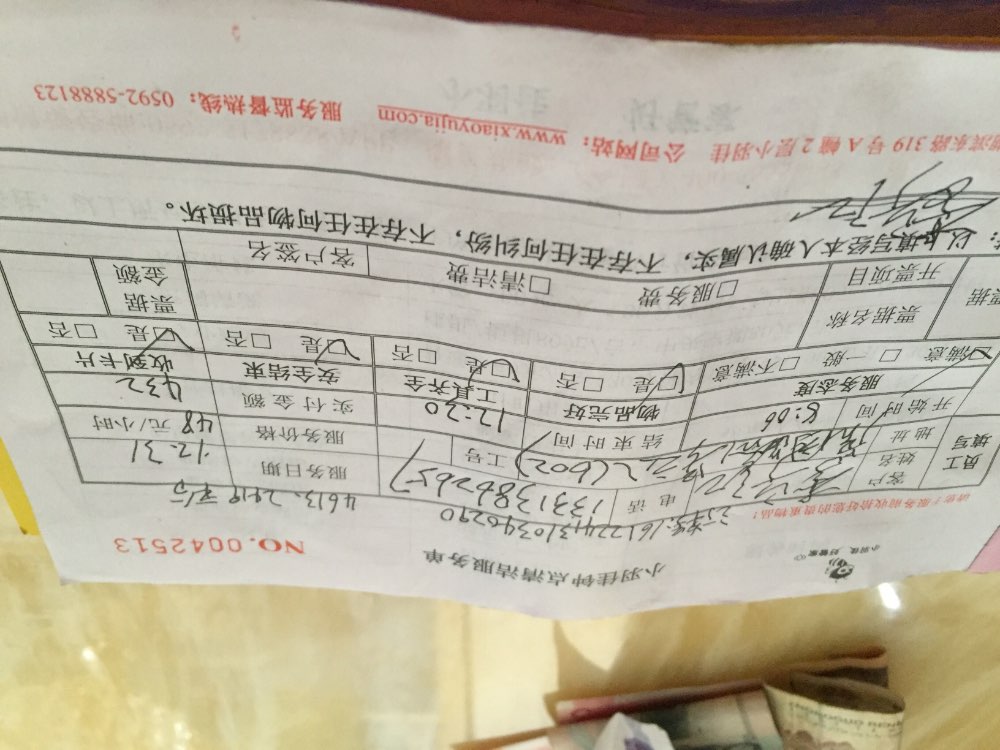 小羽佳钟点清洁服务单
小羽佳, 好管家
NO.0042513
请您于服务前收拾好您的贵重物品!
员工填写 客户姓名 电话 13313862657 服务日期 12.31
地址 工号 服务价格 48 元/小时
开始时间 8:00 结束时间 12:20 实付金额 432
服务态度 物品完好 工具齐全 安全结束 收到卡片
☑满意 □一般 □不满意 ☑是 □否 ☑是 □否 ☑是 □否 ☑是 □否
票据 票据名称 票据金额
开票项目 □服务费 □清洁费 客户签名
以上填写经本人确认属实,不存在任何纠纷,不存在任何物品损坏。
东路 319 号 A 幢 2 层小羽佳 公司网站:www.xiaoyujia.com 服务监督热线:0592-5888123